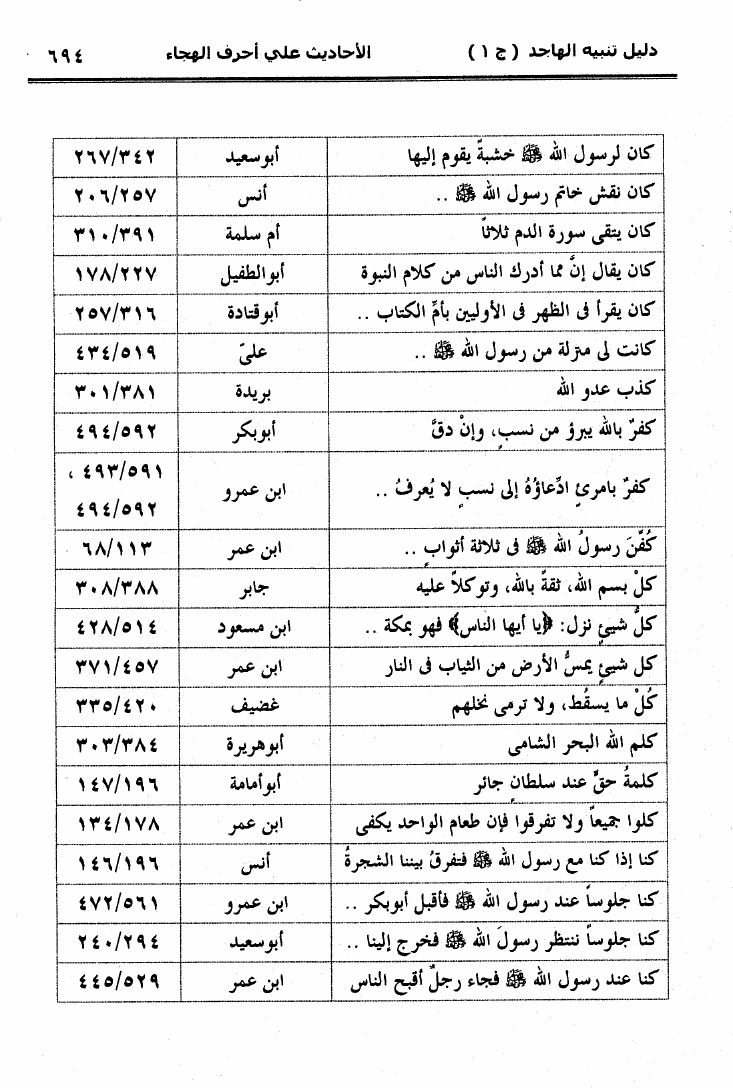 دليل تنبيه الهاجد ( ج ١ ) الأحاديث علي أحرف الهجاء ٦٩٤
كان لرسول الله ﷺ خشبةً يقوم إليها أبوسعيد ٢٦٧/٣٤٢
كان نقش خاتم رسول الله ﷺ .. أنس ٢٠٦/٢٥٧
كان يتقى سورة الدم ثلاثاً أم سلمة ٣١٠/٣٩١
كان يقال إنَّ مما أدرك الناس من كلام النبوة أبوالطفيل ١٧٨/٢٢٧
كان يقرأ فى الظهر فى الأوليين بأمِّ الكتاب .. أبوقتادة ٢٥٧/٣١٦
كانت لى منزلة من رسول الله ﷺ .. علىّ ٤٣٤/٥١٩
كذب عدو الله بريدة ٣٠١/٣٨١
كفرٌ بالله يبرؤ من نسبٍ، وإنْ دقَّ أبوبكر ٤٩٤/٥٩٢
كفرٌ بامرئٍ ادِّعاؤُهُ إلى نسبٍ لا يُعرفُ .. ابن عمرو ٤٩٣/٥٩١ ،
٤٩٤/٥٩٢
كُفِّنَ رسولُ الله ﷺ فى ثلاثة أثوابٍ .. ابن عمر ٦٨/١١٣
كلْ بسم الله، ثقةً بالله، وتوكلاً عليه جابر ٣٠٨/٣٨٨
كلُّ شيئٍ نزل: ﴿يا أيها الناس﴾ فهو بمكة .. ابن مسعود ٤٢٨/٥١٤
كل شيئٍ يمسُّ الأرض من الثياب فى النار ابن عمر ٣٧١/٤٥٧
كُلْ ما يسقُط، ولا ترمى نخلهم غضيف ٣٣٥/٤٢٠
كلم الله البحر الشامى أبوهريرة ٣٠٣/٣٨٤
كلمةُ حقٍّ عند سلطانٍ جائر أبوأمامة ١٤٧/١٩٦
كلوا جميعاً ولا تفرقوا فإن طعام الواحد يكفى ابن عمر ١٣٤/١٧٨
كنا إذا كنا مع رسول الله ﷺ فتفرقُ بيننا الشجرةُ أنس ١٤٦/١٩٦
كنا جلوساً عند رسول الله ﷺ فأقبل أبوبكر .. ابن عمرو ٤٧٢/٥٦١
كنا جلوساً ننتظر رسولَ الله ﷺ فخرج إلينا .. أبوسعيد ٢٤٠/٢٩٤
كنا عند رسول الله ﷺ فجاء رجلٌ أقبح الناس ابن عمر ٤٤٥/٥٢٩